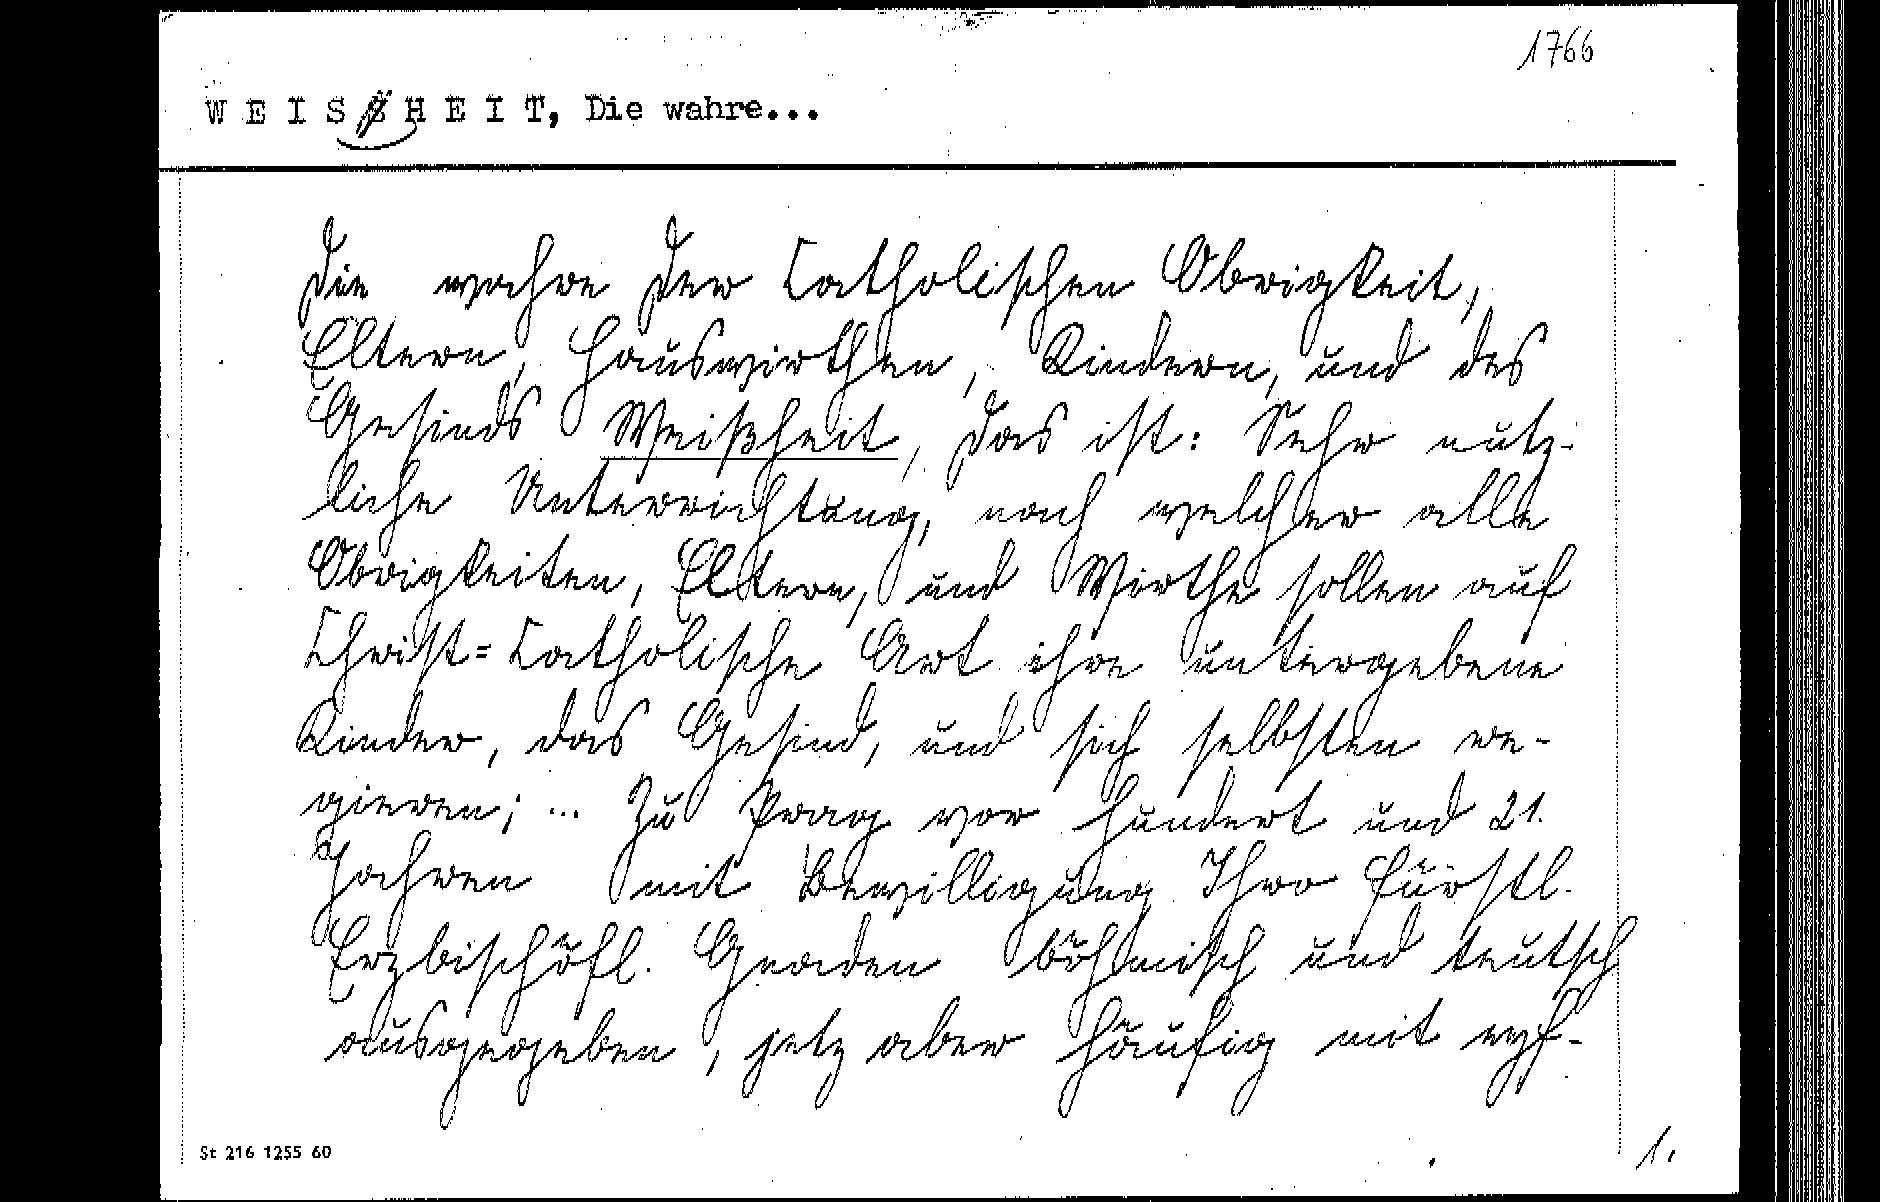 1766
WEISSHEIT, Die wahre...
Die wahre der Catholischen Obrigkeit,
Eltern, Hauswirthen, Kindern, und des
Gesinds Weißheit, das ist: Sehr nutz-
liche Unterrichtung, nach welcher alle
Obrigkeiten, Eltern, und Wirthe sollen auf
Christ=Catholische Art ihre untergebene
Kinder, das Gesind, und sich selbsten re-
gieren; ... Zu Prag vor hundert und 21.
Jahren mit Bewilligung Ihro fürstl.
Erzbischöfl. Gnaden böhmisch und teutsch
ausgegeben, jetz aber häufig mit
St 216 1255 60
1.